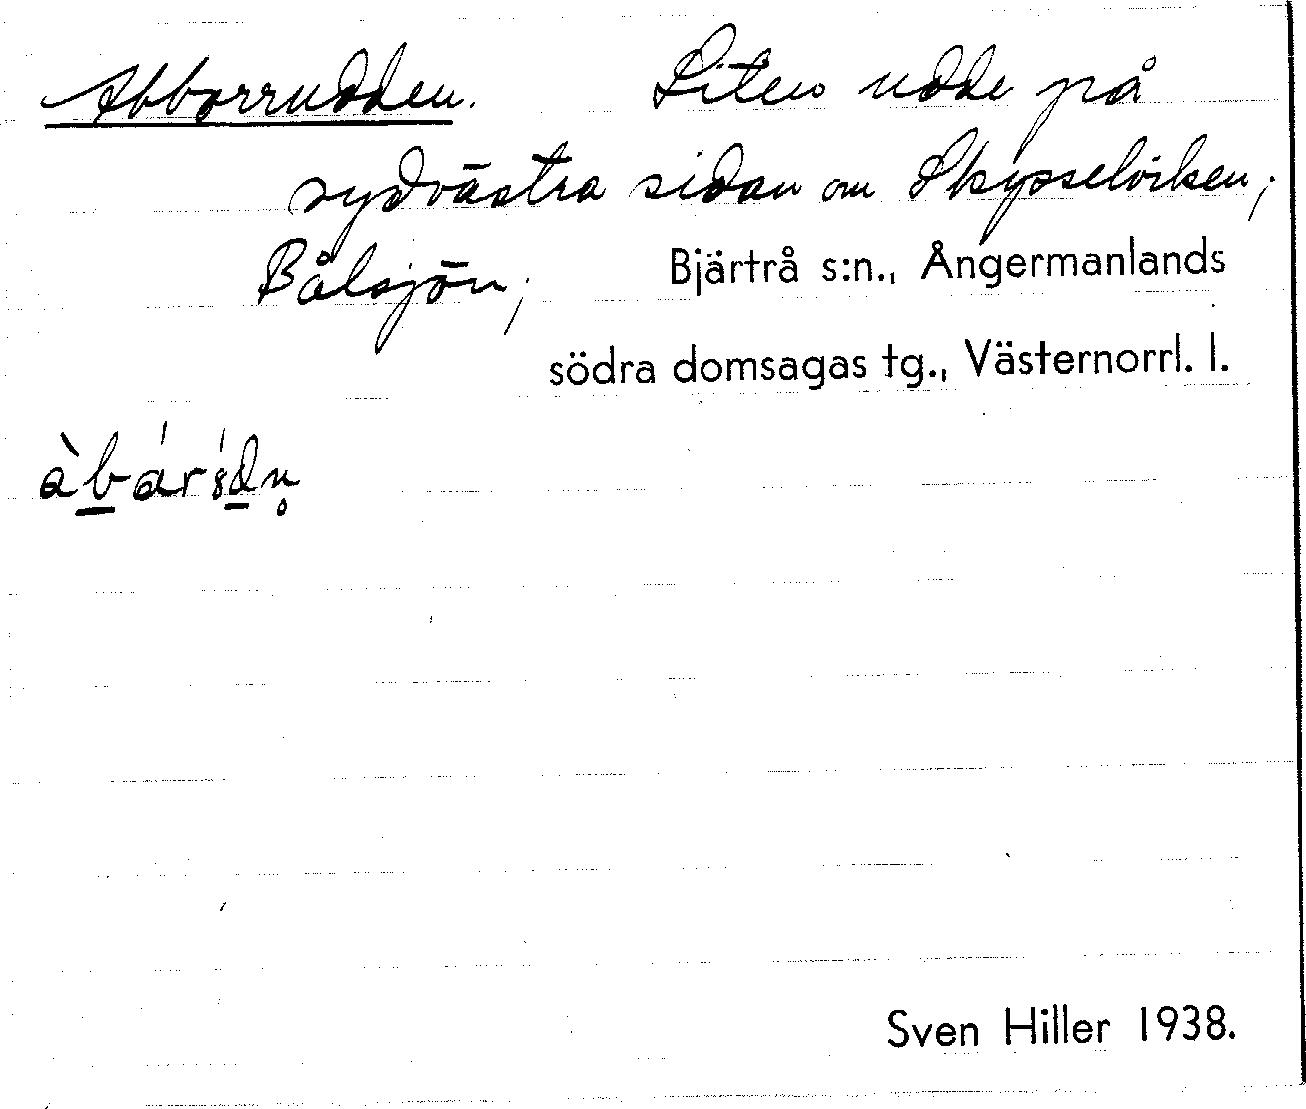 Abborrudden. Liten udde på
sydvästra sidan om Skysselviken,
Bålsjön, Bjärtrå s:n., Ångermanlands
södra domsagas tg., Västernorrl. l.
Sven Hiller 1938.